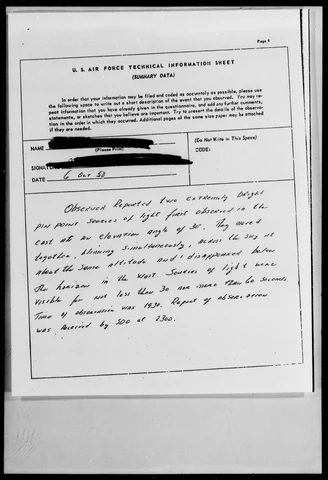 Page 9
U. S. AIR FORCE TECHNICAL INFORMATION SHEET
(SUMMARY DATA)
In order that your information may be filed and coded as accurately as possible, please use
the following space to write out a short description of the event that you observed. You may re-
peat information that you have already given in the questionnaire, and add any further comments,
statements, or sketches that you believe are important. Try to present the details of the observa-
tion in the order in which they occurred. Additional pages of the same size paper may be attached
if they are needed.
NAME
(Please Print)
(Do Not Write in This Space)
CODE:
SIGNATU
DATE 6 Oct 58
Observer Reported two extremely bright
pin point sources of light first observed in the
east at an elevation angle of 30°. They moved
together, blinking simultaneously, across the sky at
about the same altitude and disappeared below
the horizon in the West. Sources of light were
visible for not less than 30 nor more than 60 seconds.
Time of observation was 1930. Report of observation
was received by SDO at 2300.